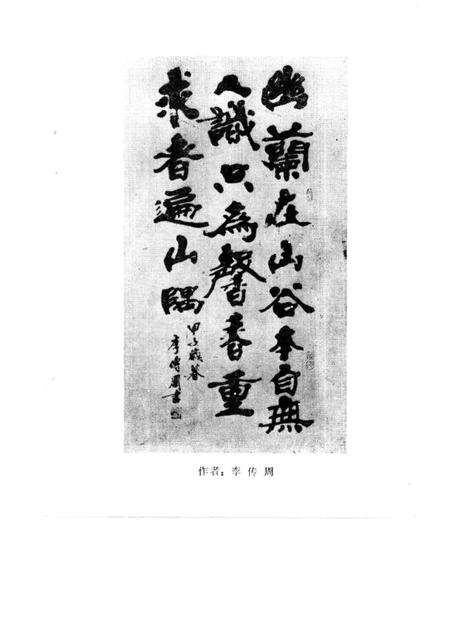 幽蘭在山谷本自無
人識只為馨香重
求者遍山隅
甲子歲暮
李傳周書
作者：李传周